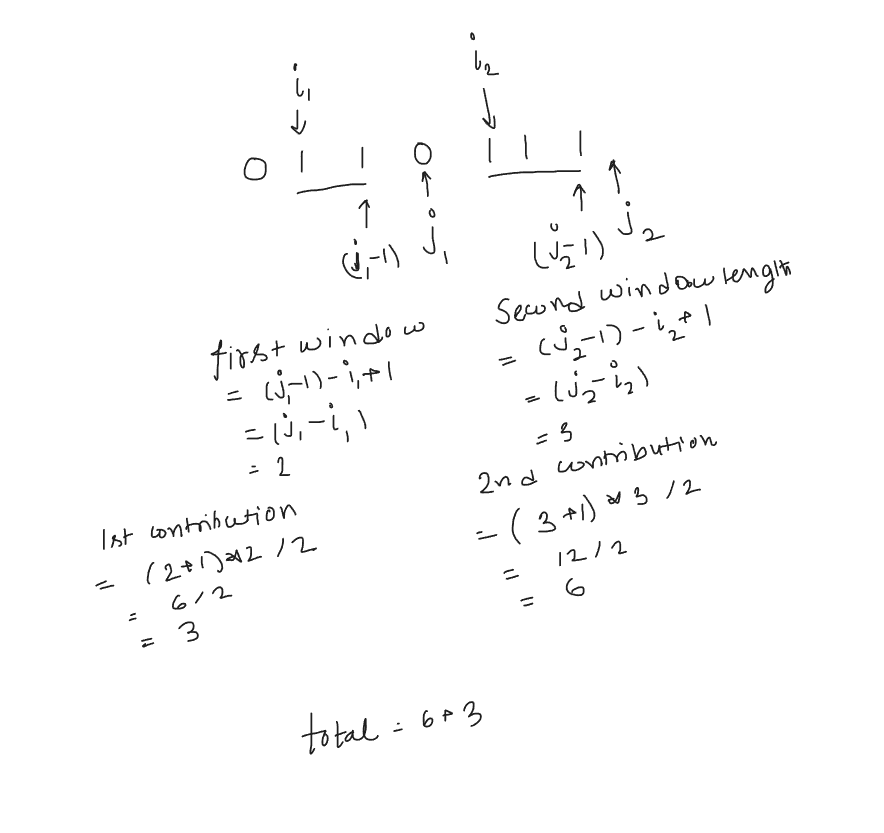 i₁ i₂
0 1 1 0 1 1 1
(j₁-1) j₁ (j₂-1) j₂
first window
= (j₁-1)-i₁+1
= (j₁-i₁)
= 2
Second window length
= (j₂-1)-i₂+1
= (j₂-i₂)
= 3
1st contribution
= (2+1)*2/2
= 6/2
= 3
2nd contribution
= (3+1)*3/2
= 12/2
= 6
total = 6+3